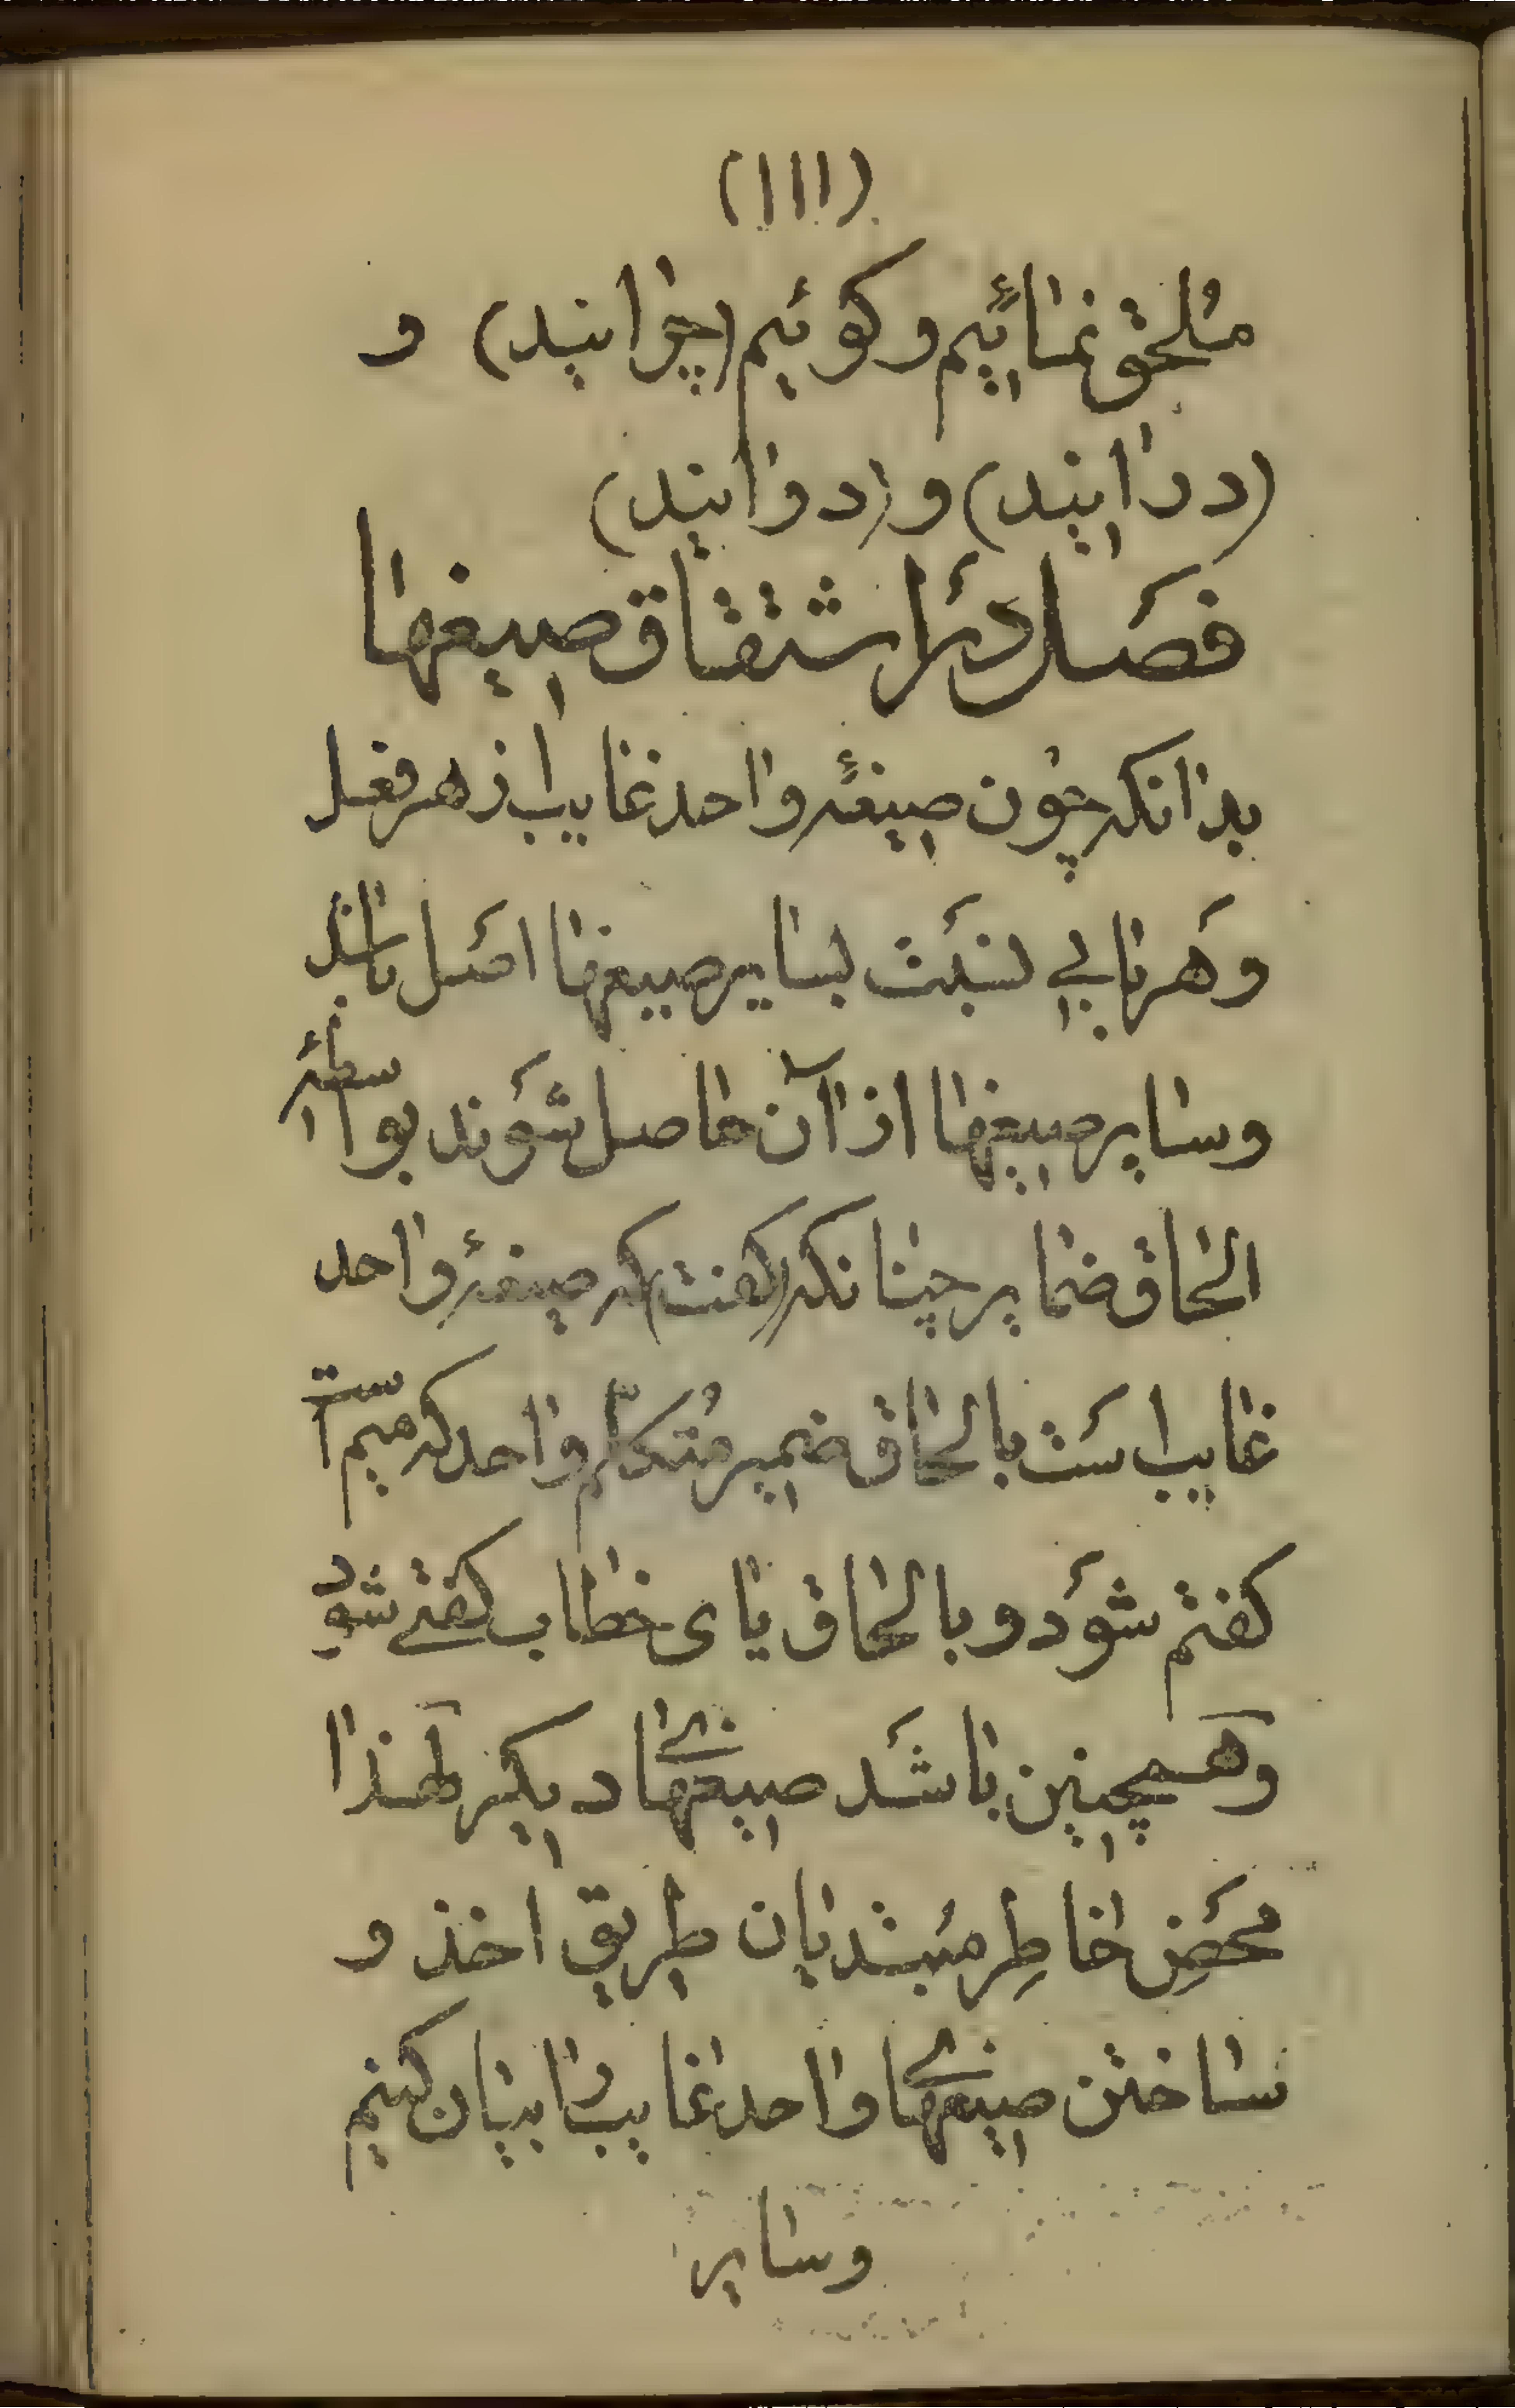 (١١١)
مُلحق نمائیم و کوئیم (چرانید) و
(درانید) و (دوانید)
فصَل دَر اشتقاق صیغها
بدانکه چون صیغهٔ واحد غایب از هر فعل
وَهر بابی نسبَت بسایر صیغها اصَل باشد
و سایر صیغها از آن حاصل شَوند بواسطهٔ
الحاق ضمایر چنانکه (کفت) که صیغهٔ واحد
غایب اسَت با الحاق ضمیر مُتکلّم واحد که میم است
کفتم شوَد و با الحاق یای خطاب کفتی شود
وَهمچنین باشَد صیغهای دیکر لهذا
محَضِ خاطِر مُبتدیان طریق اخذ و
ساختن صیغهای واحد غایب را بیان کنیم
و سایر